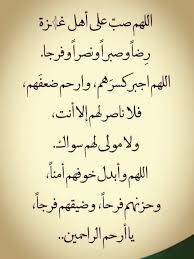 اللهم صبّ على أهل غـ.ـزة
رِضاً وصبراً ونصراً وفرجا.
اللهم اجبر كسرَهم، وارحم ضعفَهم،
فلا ناصر لهم إلا أنت،
ولا مولى لهم سواك.
اللهم وأبدل خوفهم أمناً،
وحزنهم فرحاً، وضيقهم فرجاً،
يا أرحم الراحمين..